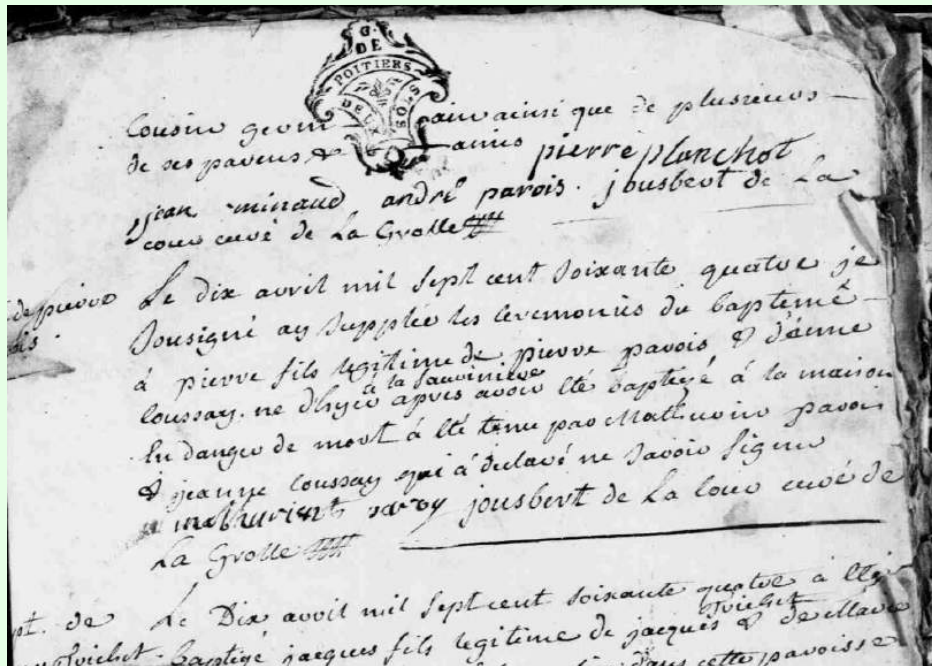 G.
DE
POITIERS
DEUX SOLS
Cousin germain ainsi que de plusieurs
de ses parens & amis pierre planchot
jean minaud andré parois. jousbert de La
cour curé de La Grolle
de pierre
Le dix avril mil sept cent soixante quatre je
sousigné ay supplée les ceremonies du baptemê
à pierre fils legitime de pierre parois & d'anne
à la sauvinière
loussay. ne d'hyer apres avoir été baptizé à la maison
En danger de mort à été tenu par Mathurin parois
& jeanne loussay qui à declaré ne savoir signer
mathurint paroy jousbert de La Cour curé de
La Grolle
pt. de
Le Dix avril mil sept cent soixante quatre à été
Trichet
Trichet. Baptizé jacques fils legitime de jacques & de Marie
dans cette paroisse